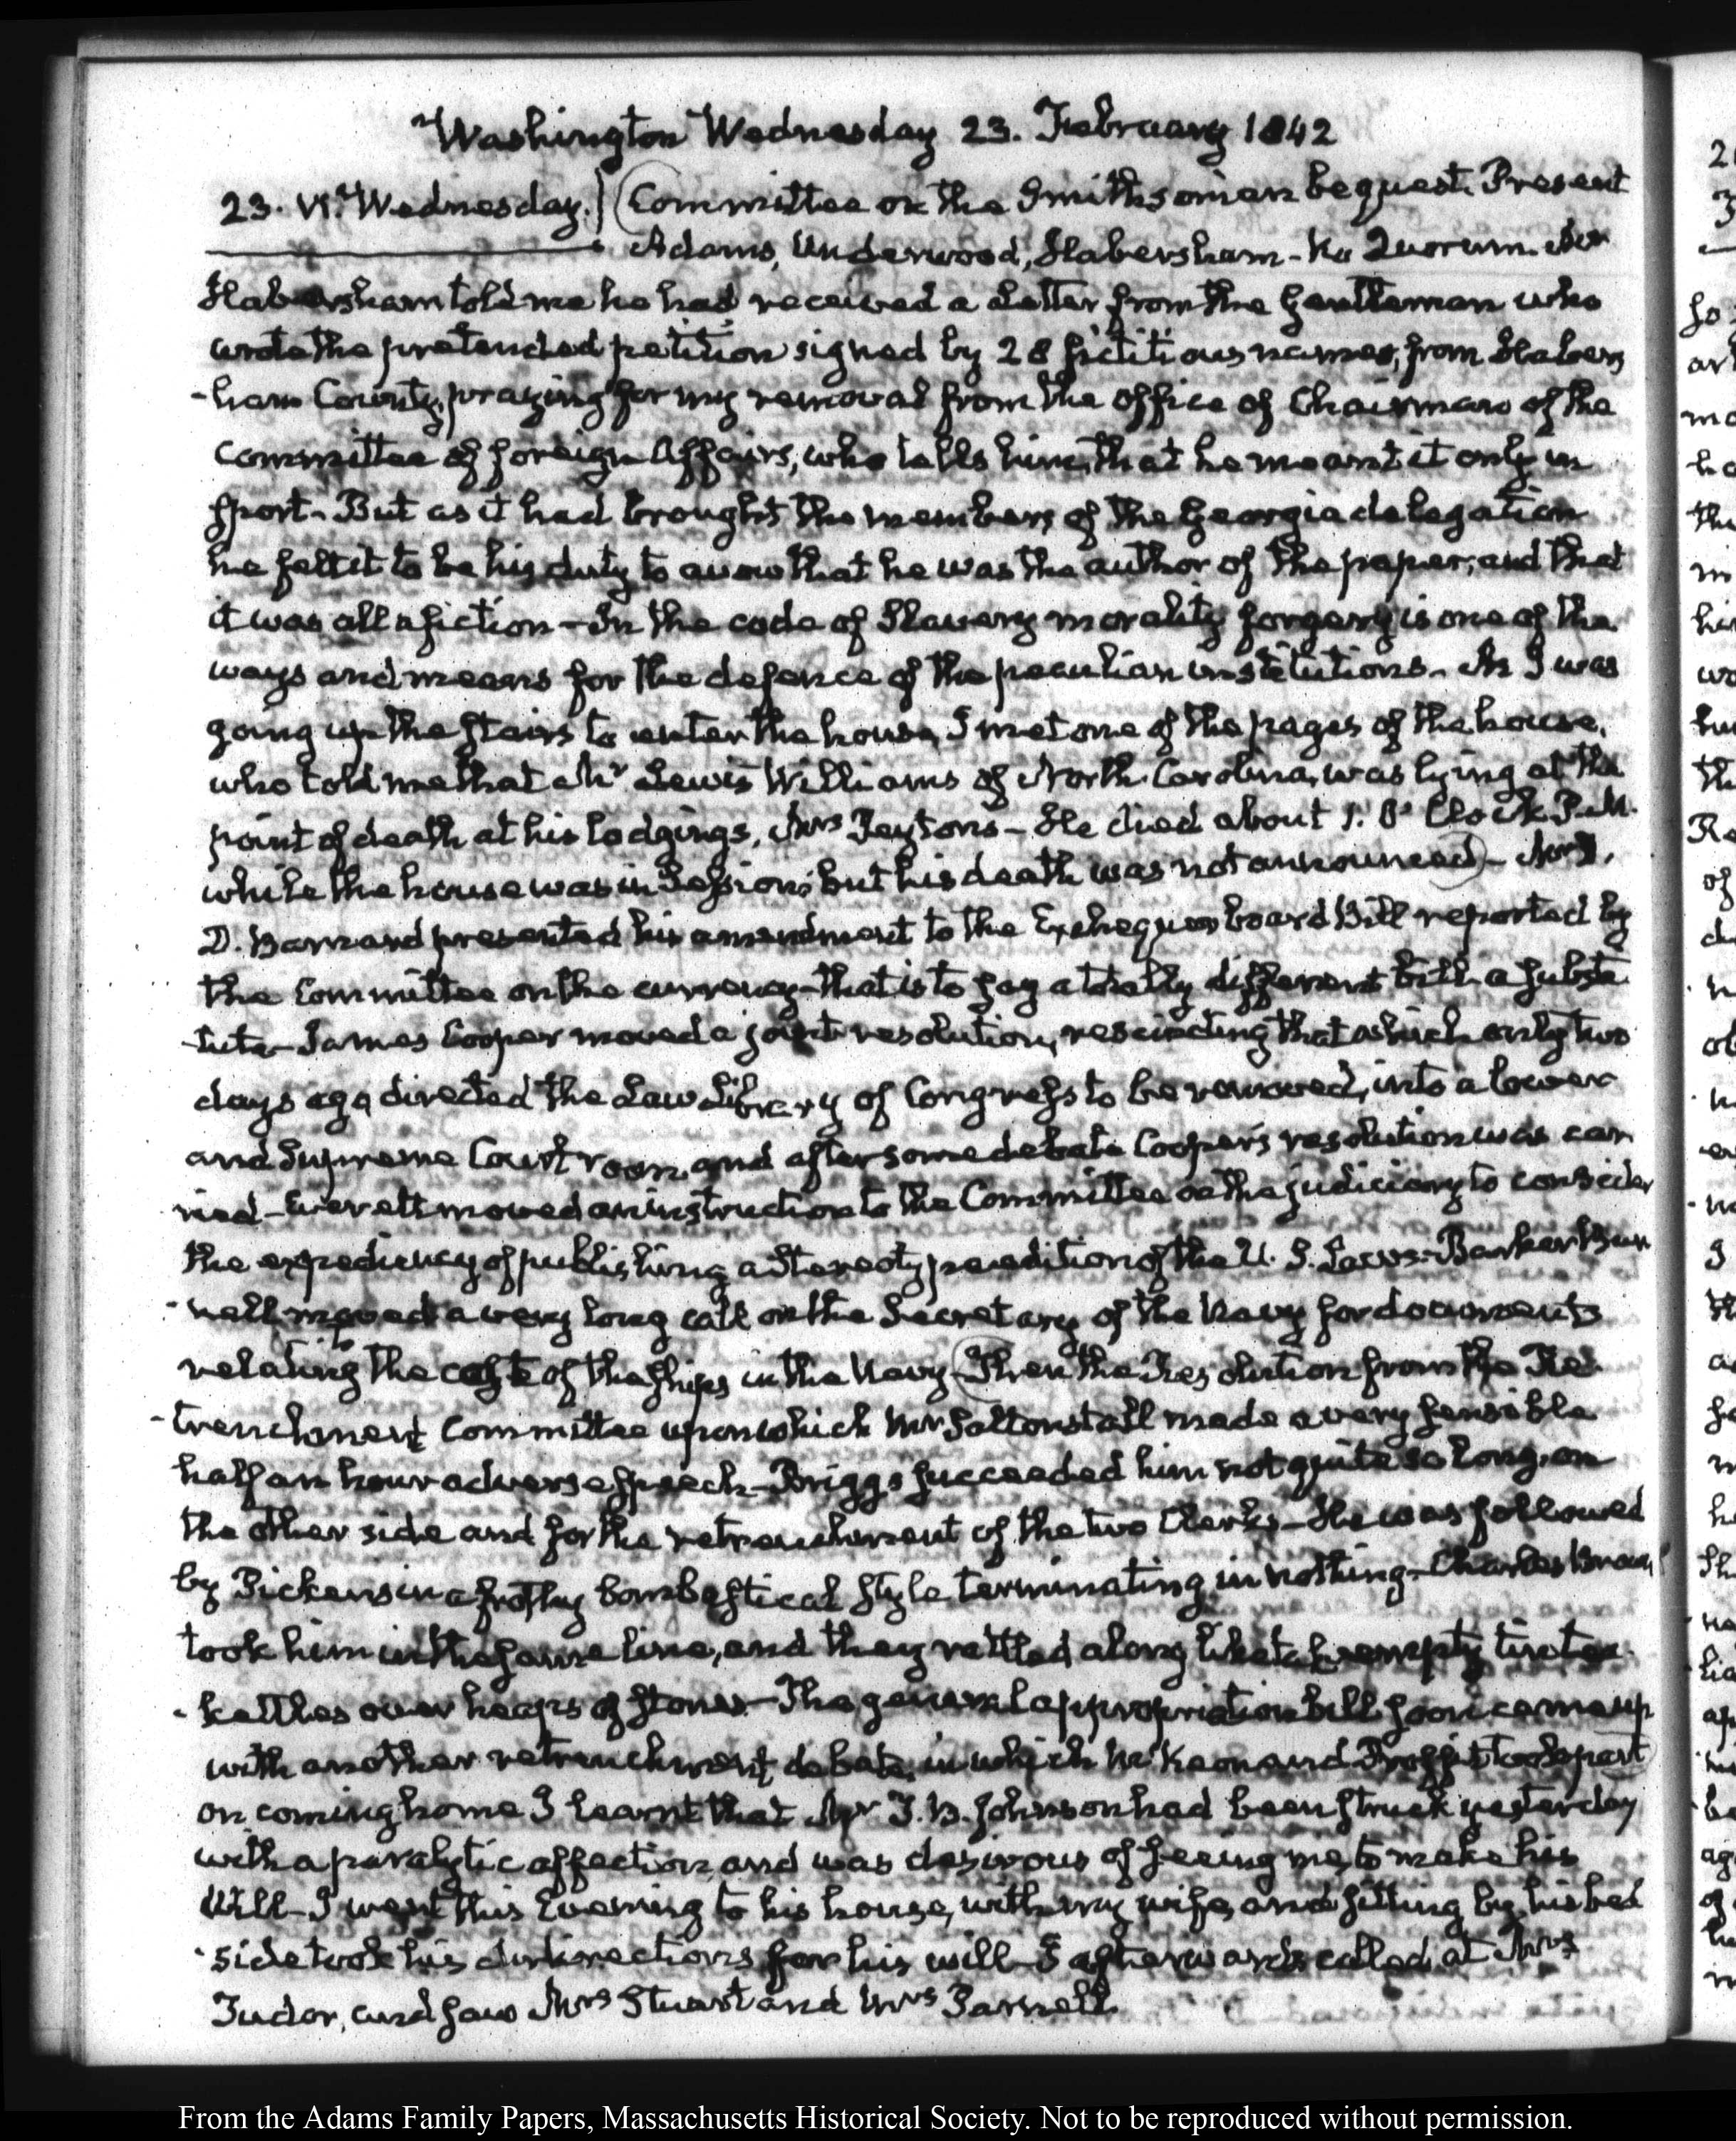 Washington Wednesday 23. February 1842
23. VI. Wednesday. Committee on the Smithsonian bequest. Present
Adams, Underwood, Habersham - No Quorum. Mr
Habersham told me he had received a Letter from the Gentleman who
wrote the pretended petition signed by 28 fictitious names, from Habers
-ham County, praying for my removal from the office of Chairman of the
Committee of foreign Affairs, who tells him, that he meant it only in
sport - But as it had brought the members of the Georgia delegation
he felt it to be his duty to avow that he was the author of the paper, and that
it was all a fiction - In the code of Slavery morality forgery is one of the
ways and means for the defence of the peculiar institutions - As I was
going up the stairs to enter the house, I met one of the pages of the house,
who told me that Mr Lewis Williams of North Carolina, was lying at the
point of death at his lodgings, Mrs Peytons - He died about 1. O' Clock P.M.
while the house was in Session; but his death was not announced - Mr
D. Barnard presented his amendment to the Exchequer board Bill reported by
the Committee on the currency - that is to say a totally different bill a substi
-tute - James Cooper moved a joint resolution, rescinding that which only two
days ago directed the Law Library of Congress to be removed, into a lower
and Supreme Court room, and after some debate Cooper's resolution was car
ried - Everett moved an instruction to the Committee on the judiciary to consider
the expediency of publishing a stereotype edition of the U. S. Laws - Barker Bur
-nell moved a very long call on the Secretary of the Navy for documents
relating to the cost of the ships in the Navy - Then the Resolution from the Re
-trenchment Committee upon which Mr Saltonstall made a very sensible
half an hour adverse speech - Briggs succeeded him not quite so long, on
the other side and for the retrenchment of the two Clerks - He was followed
by Pickens in a frothy bombastical style terminating in nothing - Charles Brown
took him in the same line, and they rattled along like empty tin tea
-kettles over heaps of stones - The general appropriation bill soon came up
with another retrenchment debate, in which McKeon and Proffit took part
on coming home I learnt that Mr T. B. Johnson had been struck yesterday
with a paralytic affection, and was desirous of seeing me, to make his
Will - I went this Evening to his house, with my wife, and sitting by his bed
-side took his directions for his will - I afterwards called at Mrs
Tudor, and saw Mrs Stuart and Mrs Parnell.
From the Adams Family Papers, Massachusetts Historical Society. Not to be reproduced without permission.